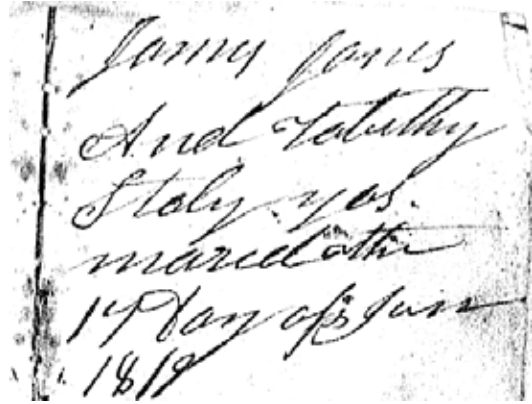 James Jones
And Tabithy
Staly yos.
maried the
17 Day of Jan
1819